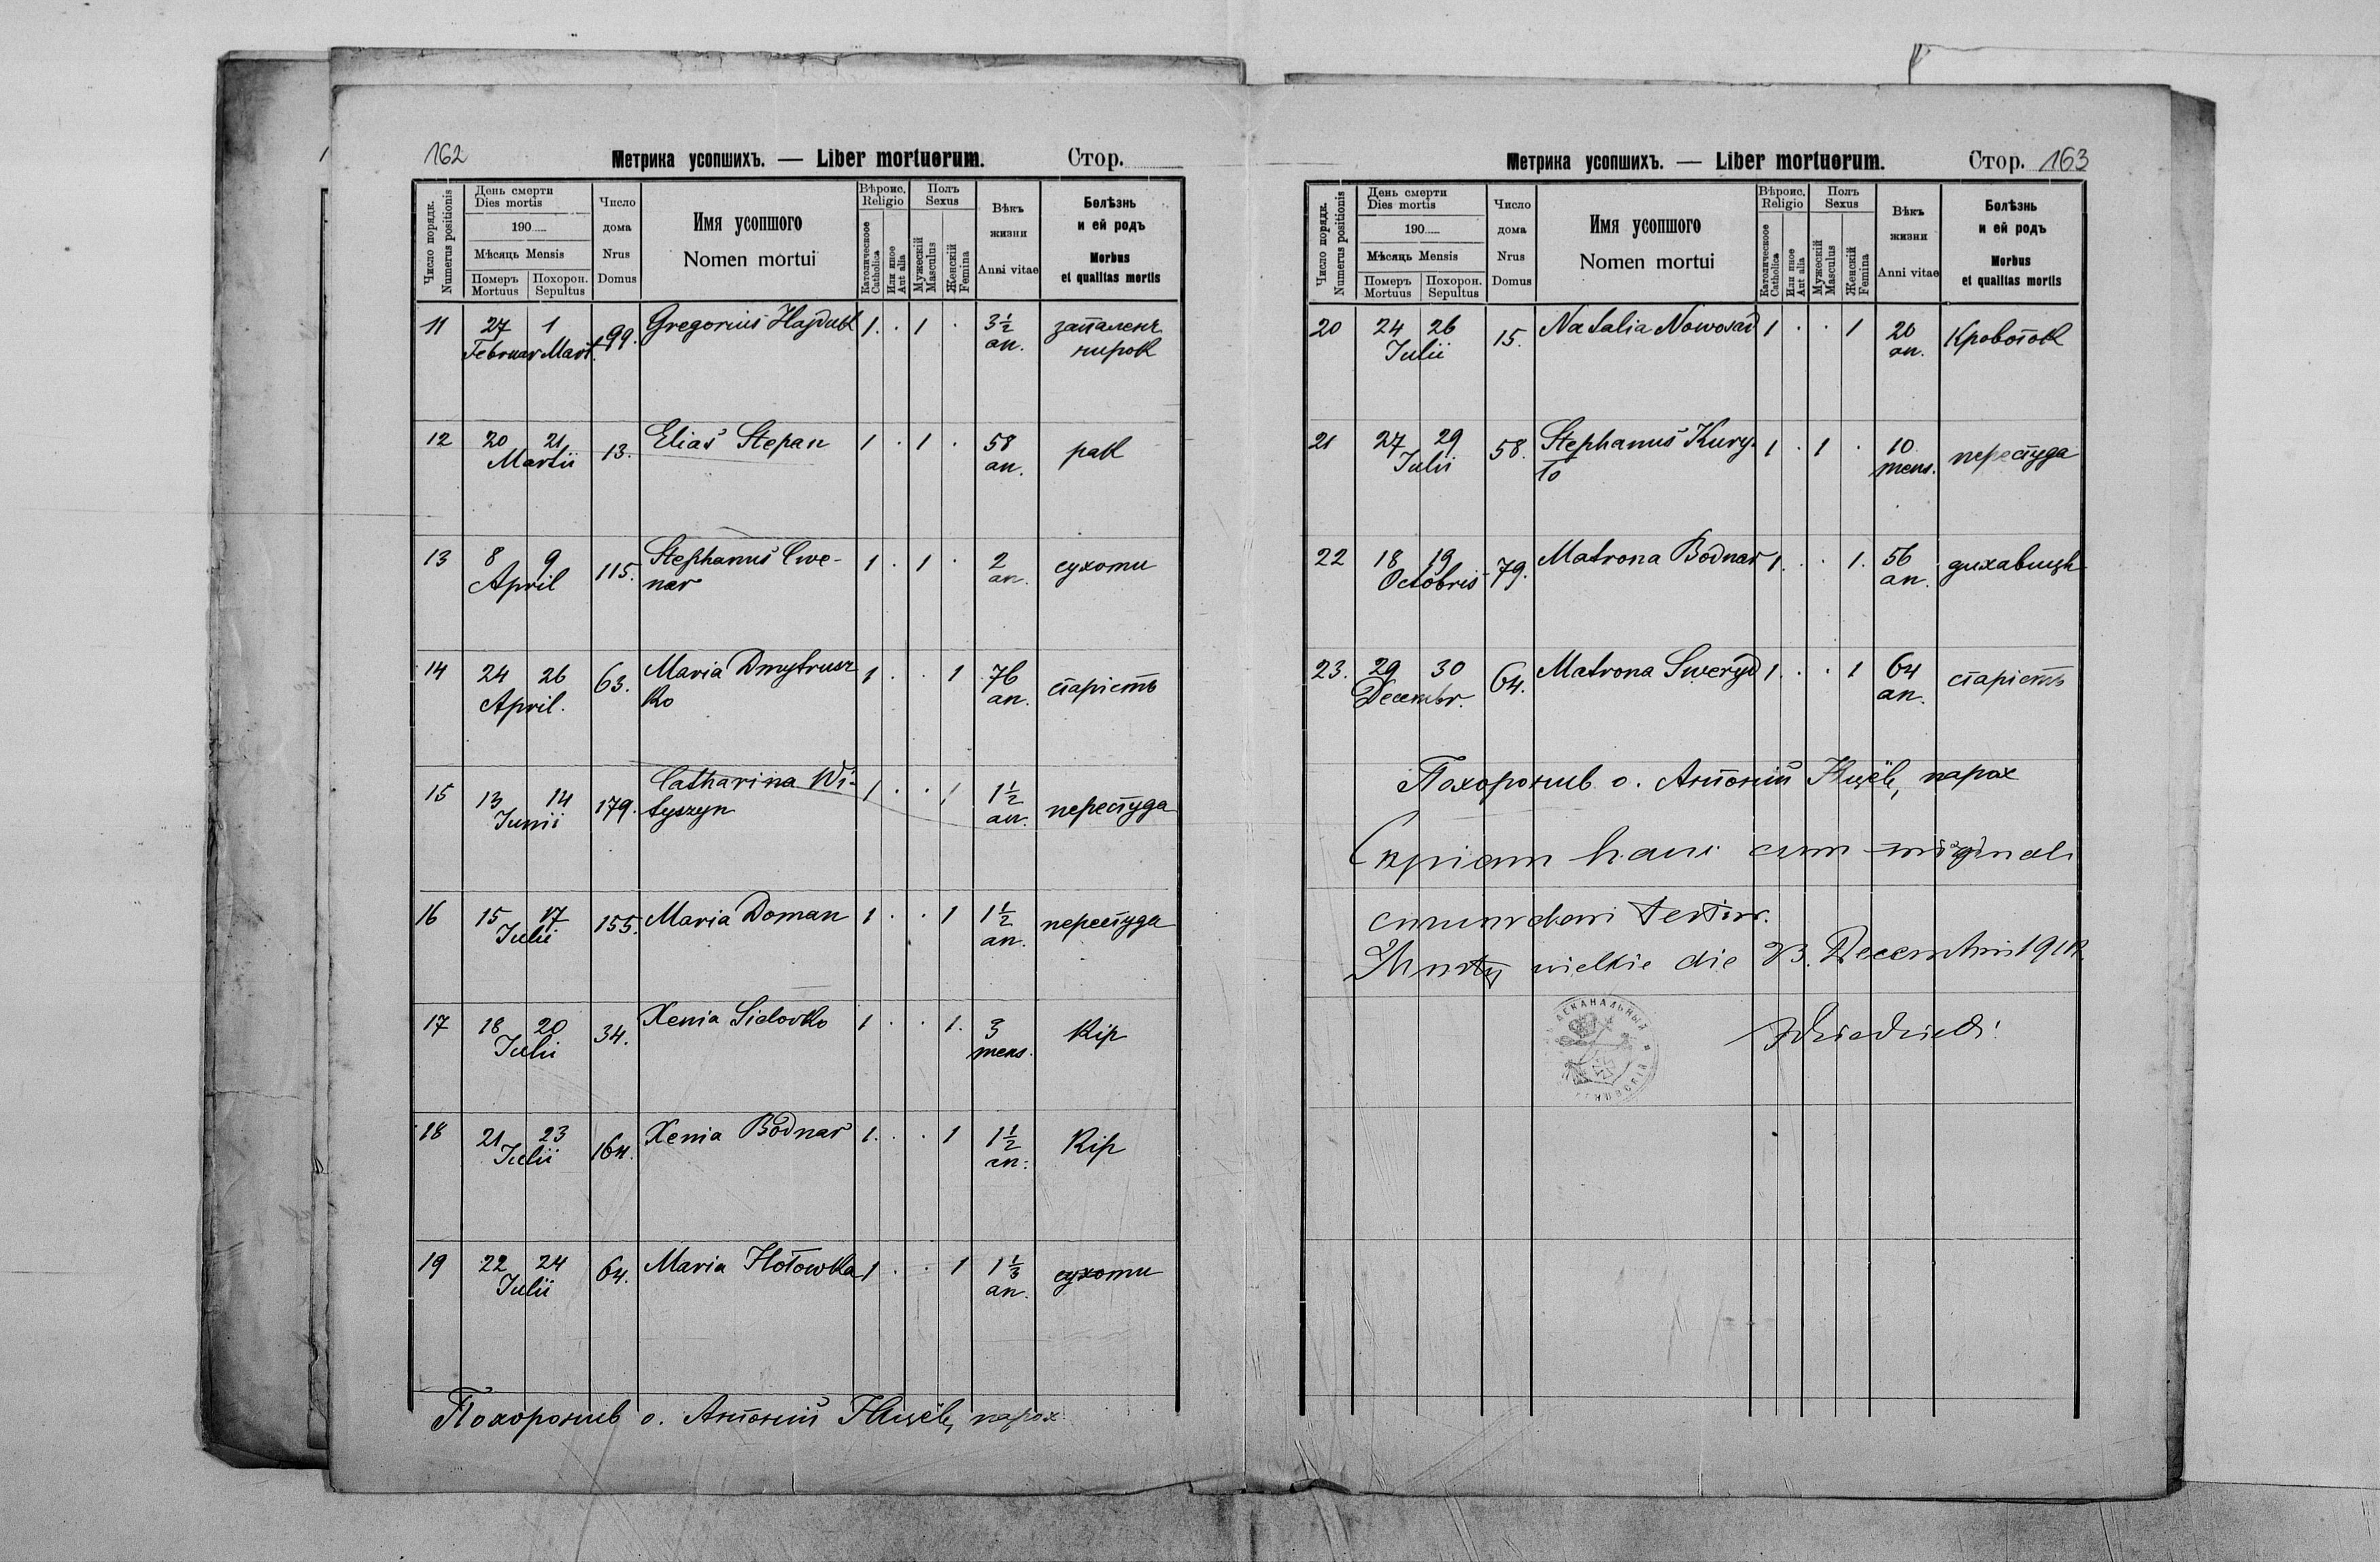 162
Метрика усопшихъ. — Liber mortuorum.
Стор.
Число порядк. Numerus positionis
День смерти Dies mortis
190
Мѣсяць Mensis
Померъ Mortuus
Похорон. Sepultus
Число дома Nrus Domus
Имя усопшого
Nomen mortui
Вѣроис. Religio
Католическое Catholica
Или иное Aut alia
Полъ Sexus
Мужескій Masculus
Женскій Femina
Вѣкъ жизни
Anni vitae
Болѣзнь и ей родъ
Morbus et qualitas mortis
11 27 Februar 1 Mart. 99. Gregorius Hajduk 1. . 1 . 3½ an. запаленє нирок
12 20 21 Martii 13. Elias Stepan 1 . 1 . 58 an. рак
13 8 9 April 115. Stephanus Cwe-
nar 1 . 1 . 2 an. сухоти
14 24 26 April. 63. Maria Dmytrusz
ko 1 . . 1 76 an. старість
15 13 14 Junii 179. Catharina Wi-
tyszyn 1 . . 1 1½ an. перестуда
16 15 17 Julii 155. Maria Doman 1 . . 1 1½ an. перестуда
17 18 20 Julii 34. Xenia Sidorko 1 . . 1. 3 mens. кір
18 21 23 Julii 164. Xenia Bodnar 1. . . 1 1½ an. кір
19 22 24 Julii 64. Maria Hołowka 1 . . 1 1⅓ an. сухоти
Похоронив о. Антоний парох
Метрика усопшихъ. — Liber mortuorum.
Стор. 163
Число порядк. Numerus positionis
День смерти Dies mortis
190
Мѣсяць Mensis
Померъ Mortuus
Похорон. Sepultus
Число дома Nrus Domus
Имя усопшого
Nomen mortui
Вѣроис. Religio
Католическое Catholica
Или иное Aut alia
Полъ Sexus
Мужескій Masculus
Женскій Femina
Вѣкъ жизни
Anni vitae
Болѣзнь и ей родъ
Morbus et qualitas mortis
20 24 26 Julii 15. Natalia Nowosad 1 . . 1 20 an. Кровоток
21 27 29 Julii 58. Stephanus Kury-
ło 1 . 1 . 10 mens. перестуда
22 18 19 Octobris 79. Matrona Bodnar 1. . . 1. 56 an. дихавиця
23. 29 30 Decembr. 64. Matrona Sweryd 1. . . 1 64 an. старість
Похоронив о. Антоний парох
Copiam hanc cum originali
concordare testor.
wielkie die 23. Decembris
ДЕКАНАЛЬНЫЙ